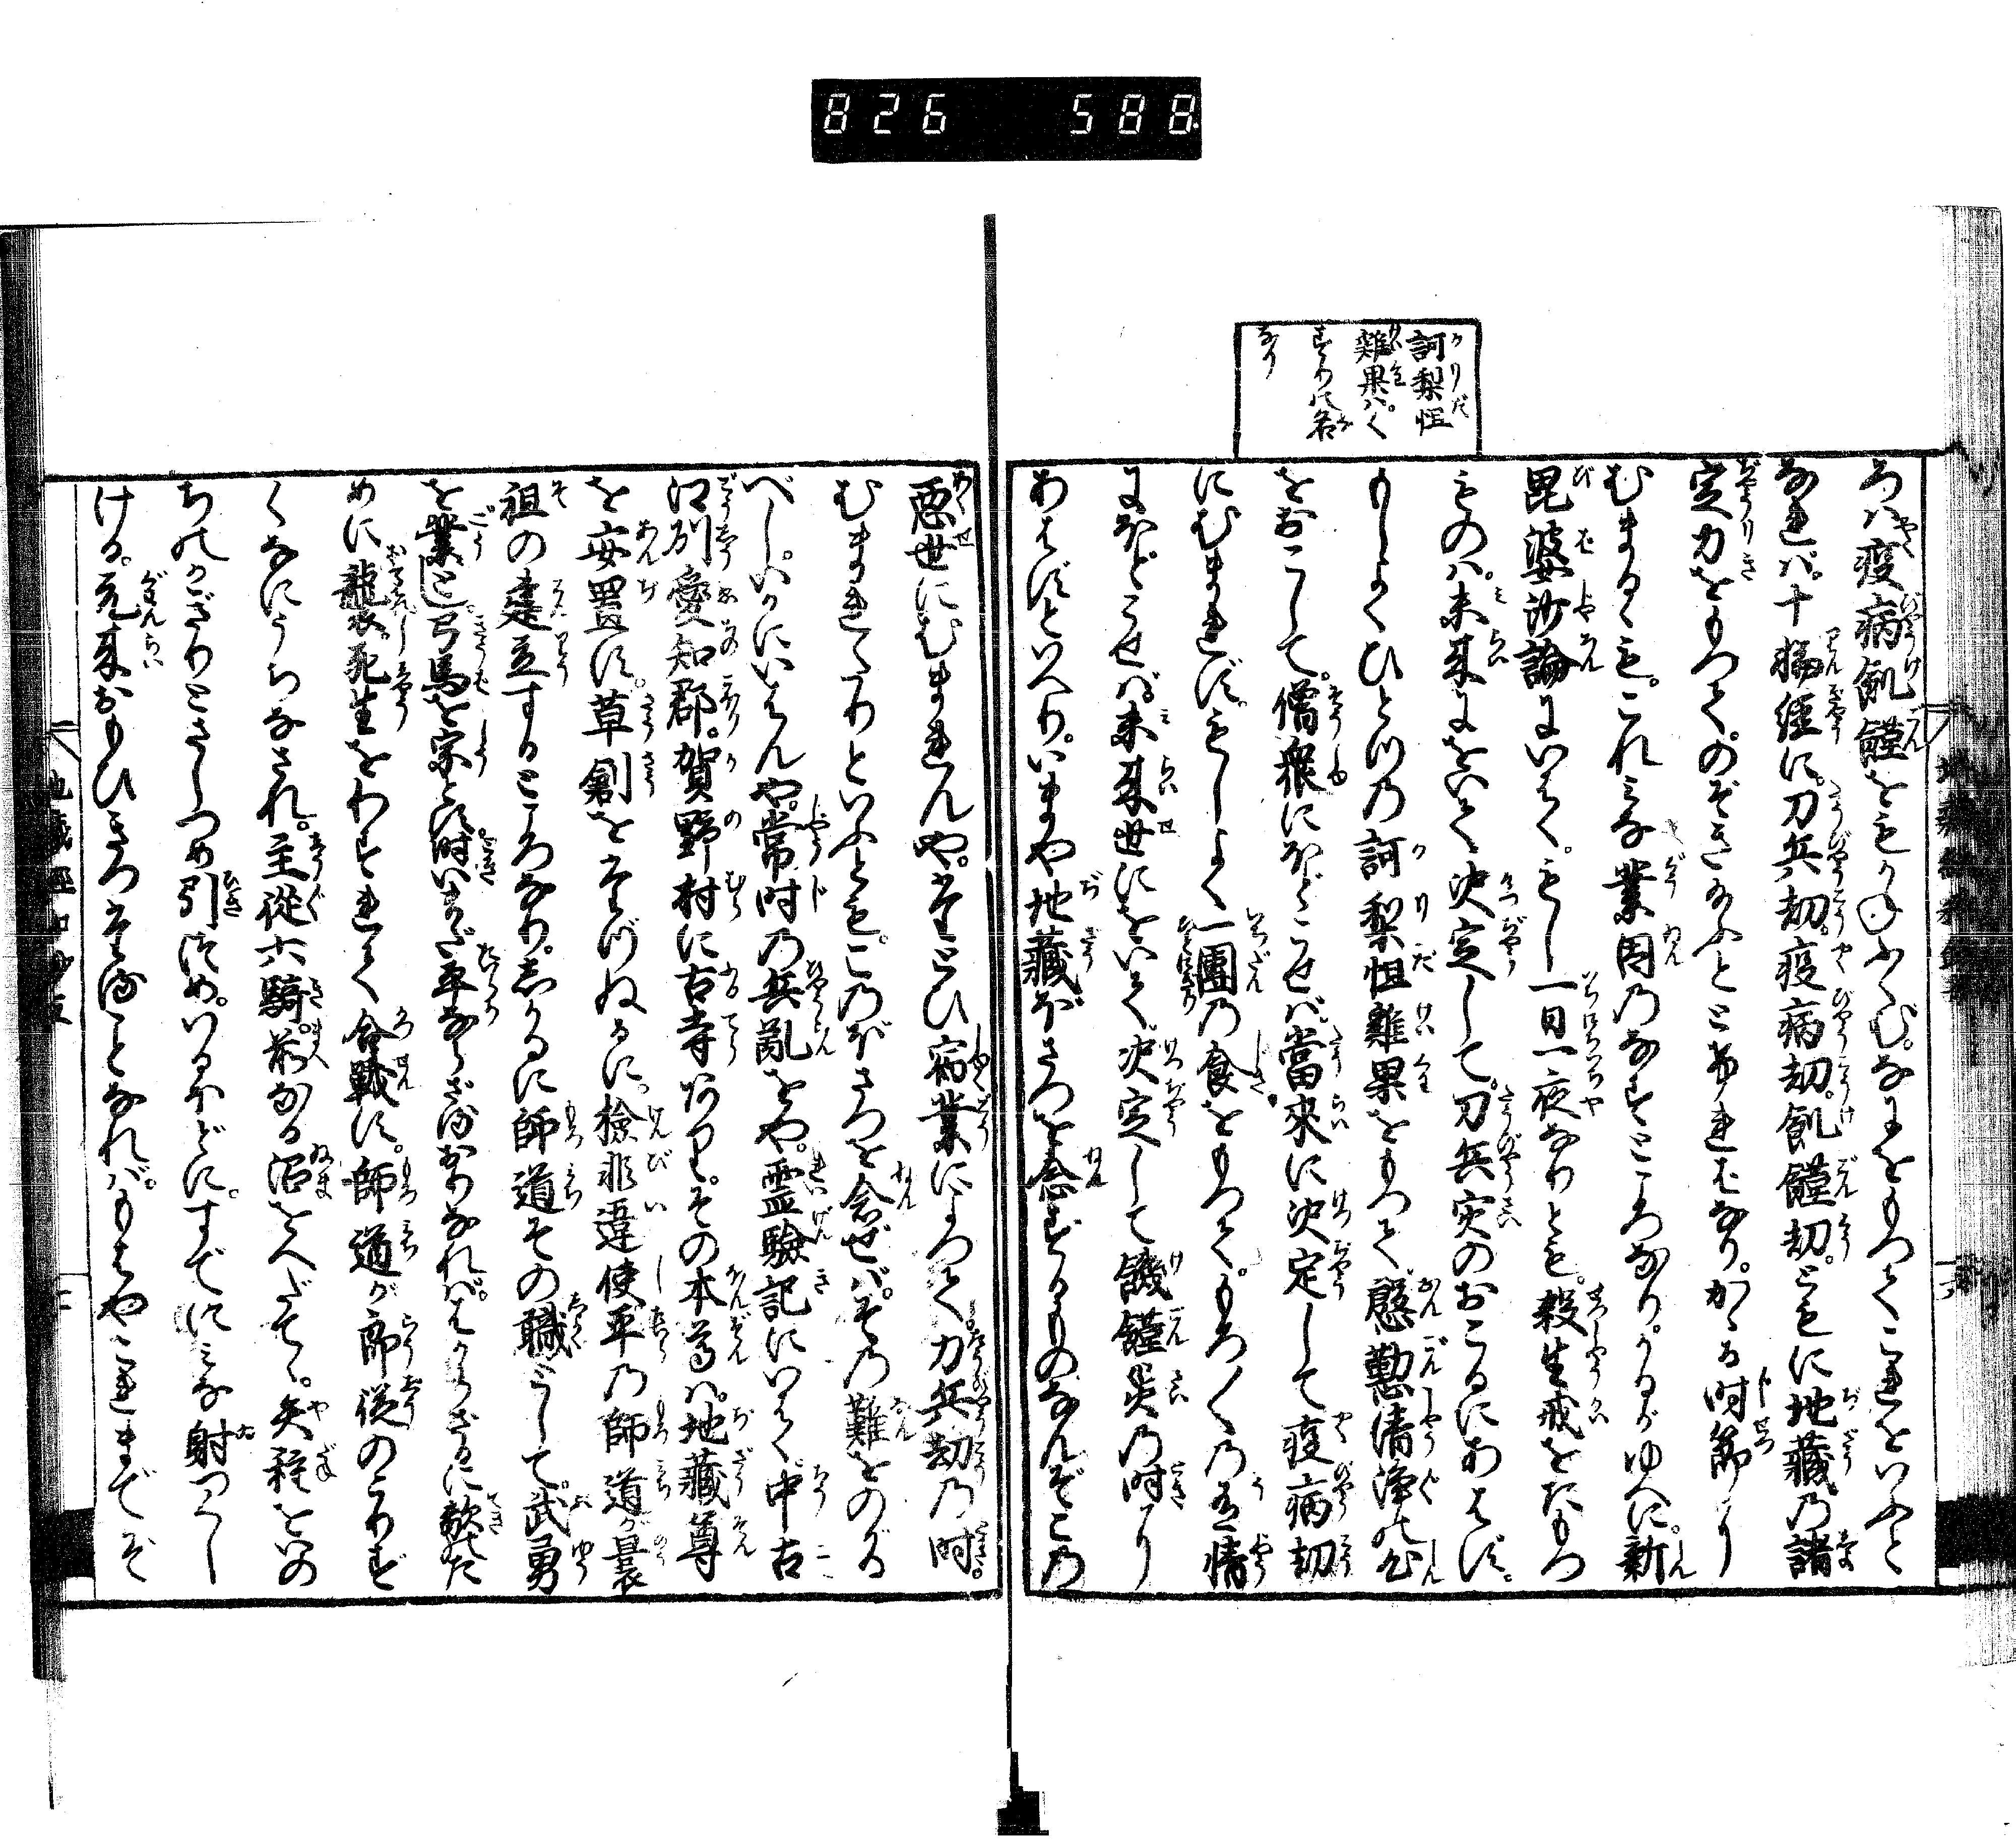 826 588
訶梨怛
雞果ハく
すりの名
なり
ろハ疫病飢饉をもかねふくむ。なにをもつてこれをいふと
なれバ。十輪經に。刀兵劫。疫病劫。飢饉劫。ともに地藏乃諸
定力をもつて。のぞき給ふととけれはなり。かゝる時節に
むまるゝも。これみな業因乃なすところなり。かるがゆへに。新
毘婆沙論にいはく。もし一日一夜なりとも。殺生戒をたもつ
ものハ。未来にをいて決定して。刀兵災のおこるにあはず。
もしよくひとつ乃訶梨怛雞果をもつて。慇懃清浄の心
をおこして。僧衆にほどこせバ。當來に決定して疫病劫
にむまれず。もしよく一團乃食をもつて。もろ〱乃有情
にほどこせバ。未来世にをいて決定して饑饉災乃時に
あはずといへり。いまや地藏ぼさつを念ずるものなんぞこ乃
悪世にむまれんや。たとひ宿業によつて刀兵劫乃時。
むまれたりといふとも。こ乃ぼさつを念ぜバ。その難をのがる
べし。いかにいはんや。常時乃兵乱をや。霊驗記にいはく。中古
江刕愛知郡。賀野村に古寺あり。その本尊ハ。地藏尊
を安置す。草創をたづぬるに。檢非違使平乃師道が曩
祖の建立するところなり。しかるに師道その職として。武勇
を業とし。弓馬を宗とす。時いまだ平ならざるおりなれバ。はからざるに敵のた
めに襲れ。死生をわすれて合戰す。師道が郎従のこりず
くなにうちなされ。主從六騎。前なる沼をへだてゝ。矢種をいの
ちのかぎりとさしつめ引つめ。いるほどに。すでにみな射つくし
ける。元来おもひきつたることなれバ。もはやこれまでぞ